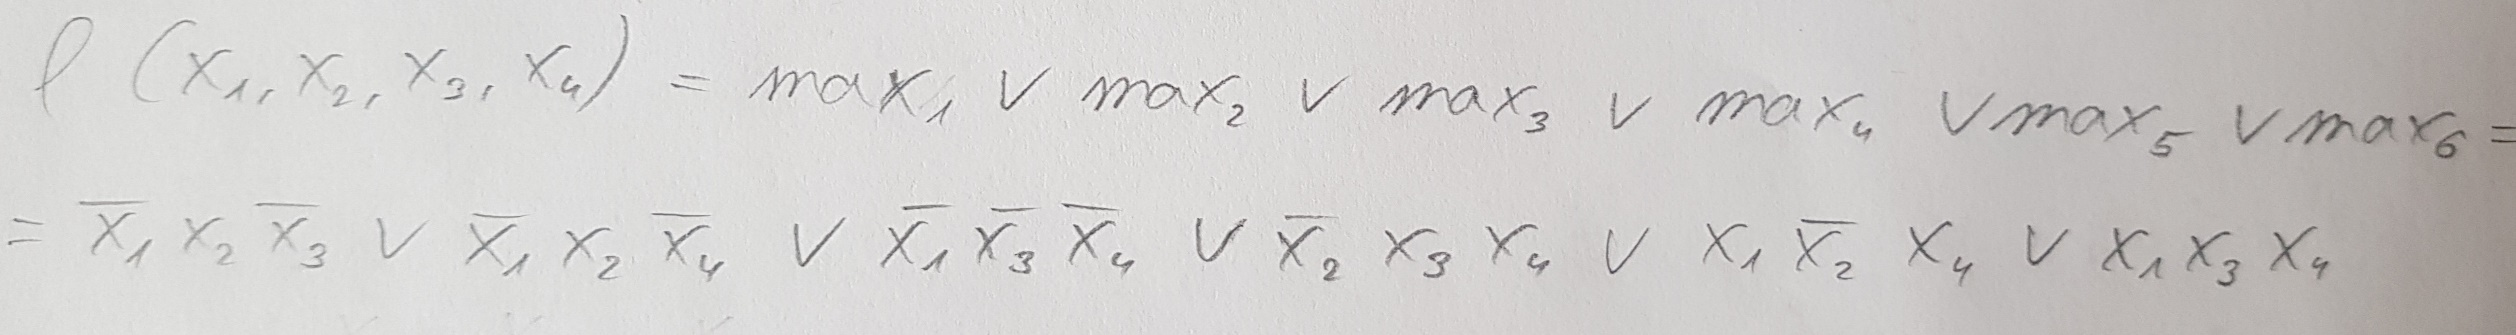 f (x₁, x₂, x₃, x₄) = max₁ ∨ max₂ ∨ max₃ ∨ max₄ ∨ max₅ ∨ max₆ =
= x̅₁ x₂ x̅₃ ∨ x̅₁ x₂ x̅₄ ∨ x̅₁ x̅₃ x̅₄ ∨ x̅₂ x₃ x₄ ∨ x₁ x̅₂ x₄ ∨ x₁ x₃ x₄